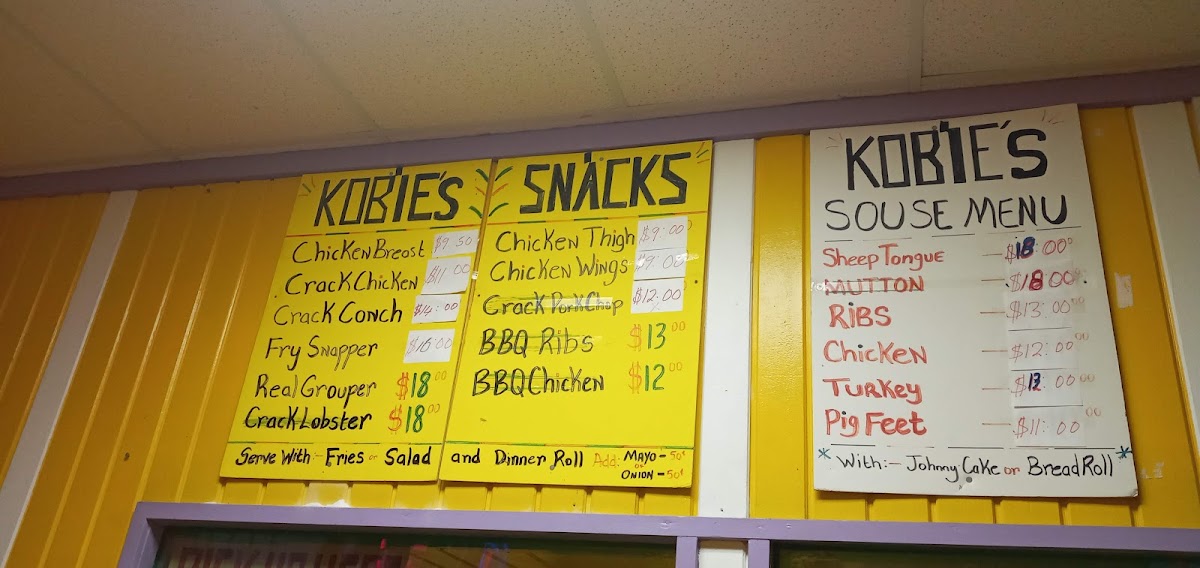 KOBIE'S
Chicken Breast $9 50
Crack Chicken $11 00
Crack Conch $14:00
Fry Snapper $16:00
Real Grouper $18 00
Crack Lobster $18 00
Serve With:- Fries or Salad
SNACKS
Chicken Thigh $9:00
Chicken Wings $9:00
Crack Pork Chop $12:00
BBQ Ribs $13 00
BBQ Chicken $12 00
and Dinner Roll Add: MAYO-50¢
or ONION-50¢
KOBIE'S
SOUSE MENU
Sheep Tongue - $18:00
MUTTON - $18 00
RIBS - $13:00
Chicken - $12:00
Turkey - $12:00
Pig Feet - $11:00
*With:- Johnny Cake or Bread Roll*